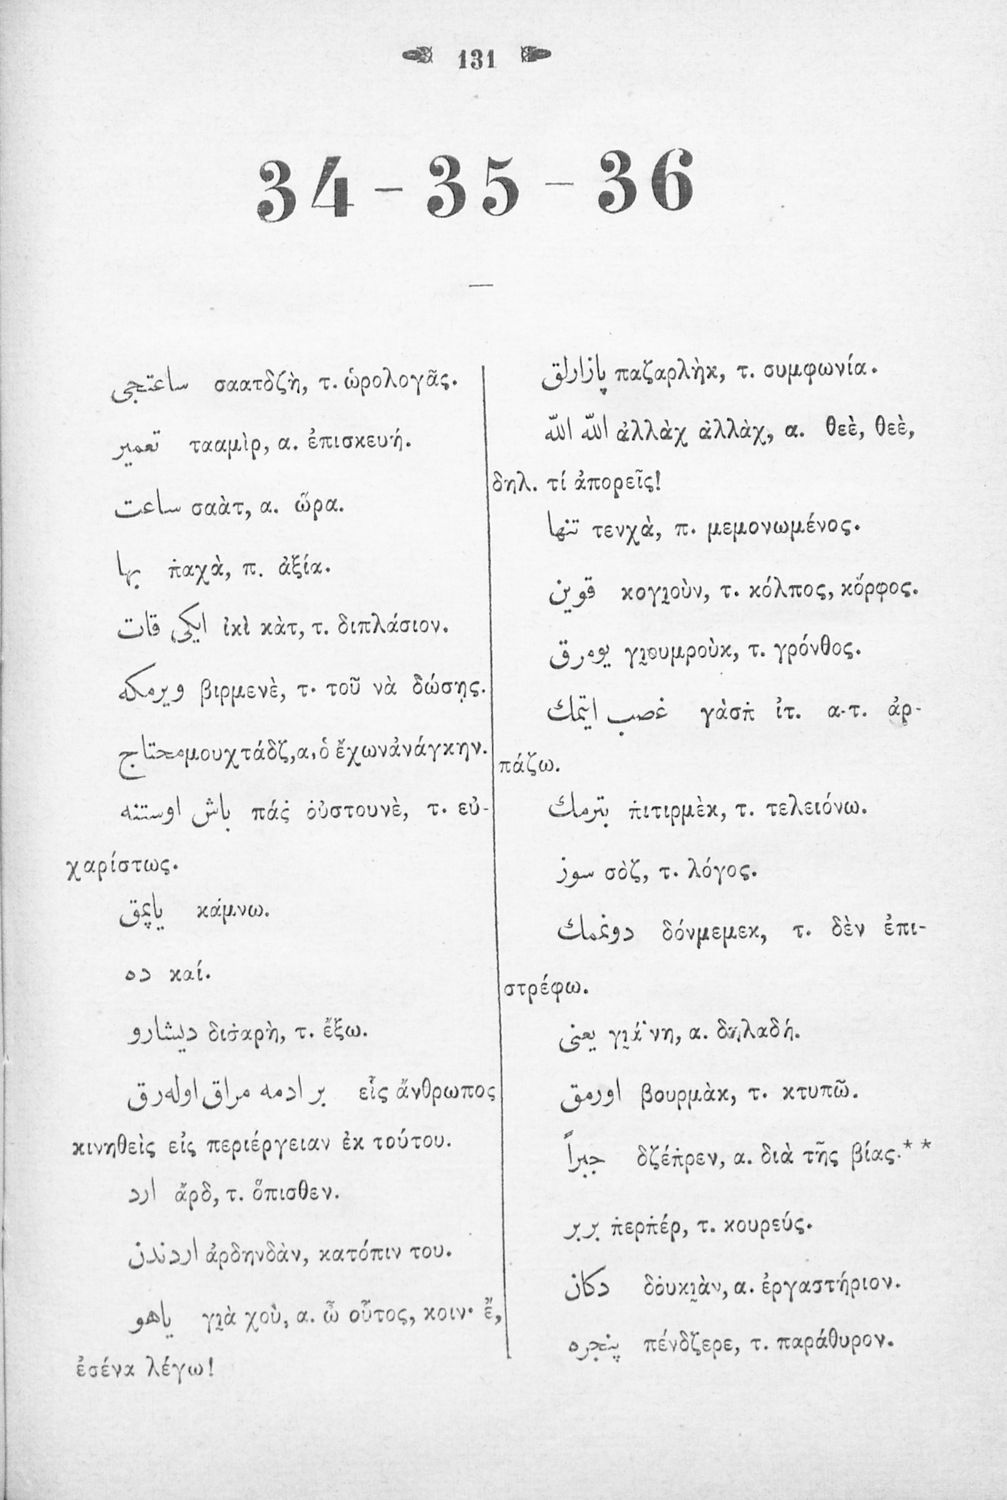 131
34 - 35 - 36
ساعتجى σαατδζὴ, τ. ὡρολογᾶς.
تعمير τααμὶρ, α. ἐπισκευή.
ساعت σαὰτ, α. ὥρα.
بها π̇αχὰ, π. ἀξία.
ايكى قات ἰκὶ κὰτ, τ. διπλάσιον.
ويرمكه βιρμενὲ, τ. τοῦ νὰ δώσῃς.
محتاج μουχτάδζ, α, ὁ ἔχων ἀνάγκην.
باش اوستنه πάς̇ οὐστουνὲ, τ. εὐ-
χαρίστως.
ياپمق κάμνω.
ده καί.
ديشارو δισ̇αρὴ, τ. ἔξω.
بر ادمه مراق اولەرق εἷς ἄνθρωπος
κινηθεὶς εἰς περιέργειαν ἐκ τούτου.
ارد ἄρδ, τ. ὄπισθεν.
اردندن ἀρδηνδὰν, κατόπιν του.
ياهو γιὰ χοὺ, α. ὦ οὗτος, κοιν· ἔ,
ἐσένα λέγω!
پازارلق παζαρλὴκ, τ. συμφωνία.
الله الله ἀλλὰχ ἀλλὰχ, α. θεὲ, θεὲ,
δηλ. τί ἀπορεῖς!
تنها τενχὰ, π. μεμονωμένος.
قوين κογιοὺν, τ. κόλπος, κόρφος.
يومرق γιουμροὺκ, τ. γρόνθος.
غصب ايتمك γὰσπ̇ ἰτ. α.τ. ἁρ-
πάζω.
بترمك π̇ιτιρμὲκ, τ. τελειόνω.
سوز σὸζ, τ. λόγος.
دونمك δόνμεμεκ, τ. δὲν ἐπι-
στρέφω.
يعنى γιά̇νη, α. δηλαδή.
اورمق βουρμὰκ, τ. κτυπῶ.
جبراً δζέπ̇ρεν, α. διὰ τῆς βίας.**
بربر π̇ερπ̇έρ, τ. κουρεύς.
دكان δουκιὰν, α. ἐργαστήριον.
پنجره πένδζερε, τ. παράθυρον.